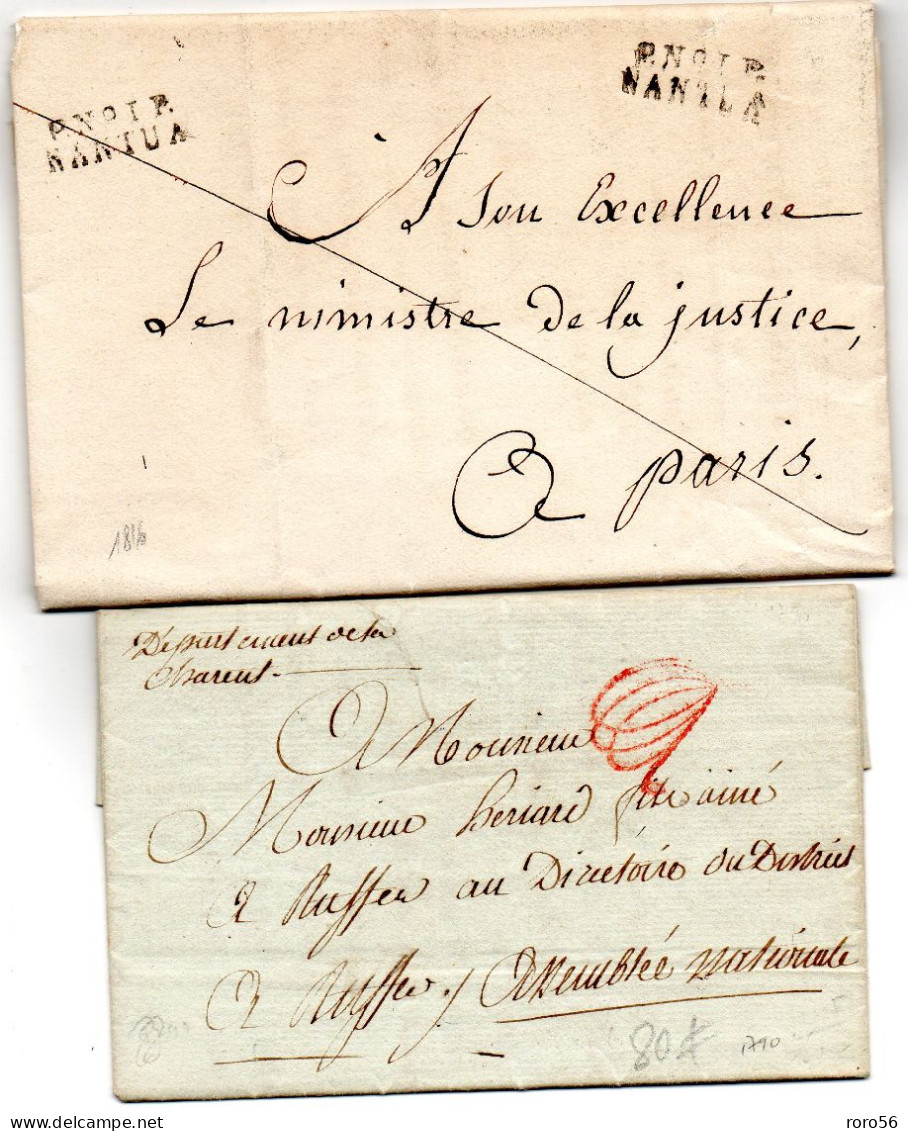 P.NO1P.
NANTUA
P.NO1P.
NANTUA
A Son Excellence
Le ministre de la justice,
A paris.
1816
Département de la
Charent
A Monsieur
Monsieur heriard fils ainé
A Ruffec au Directoire du District
A Ruffec / Assemblée nationale
80
1790
roro56